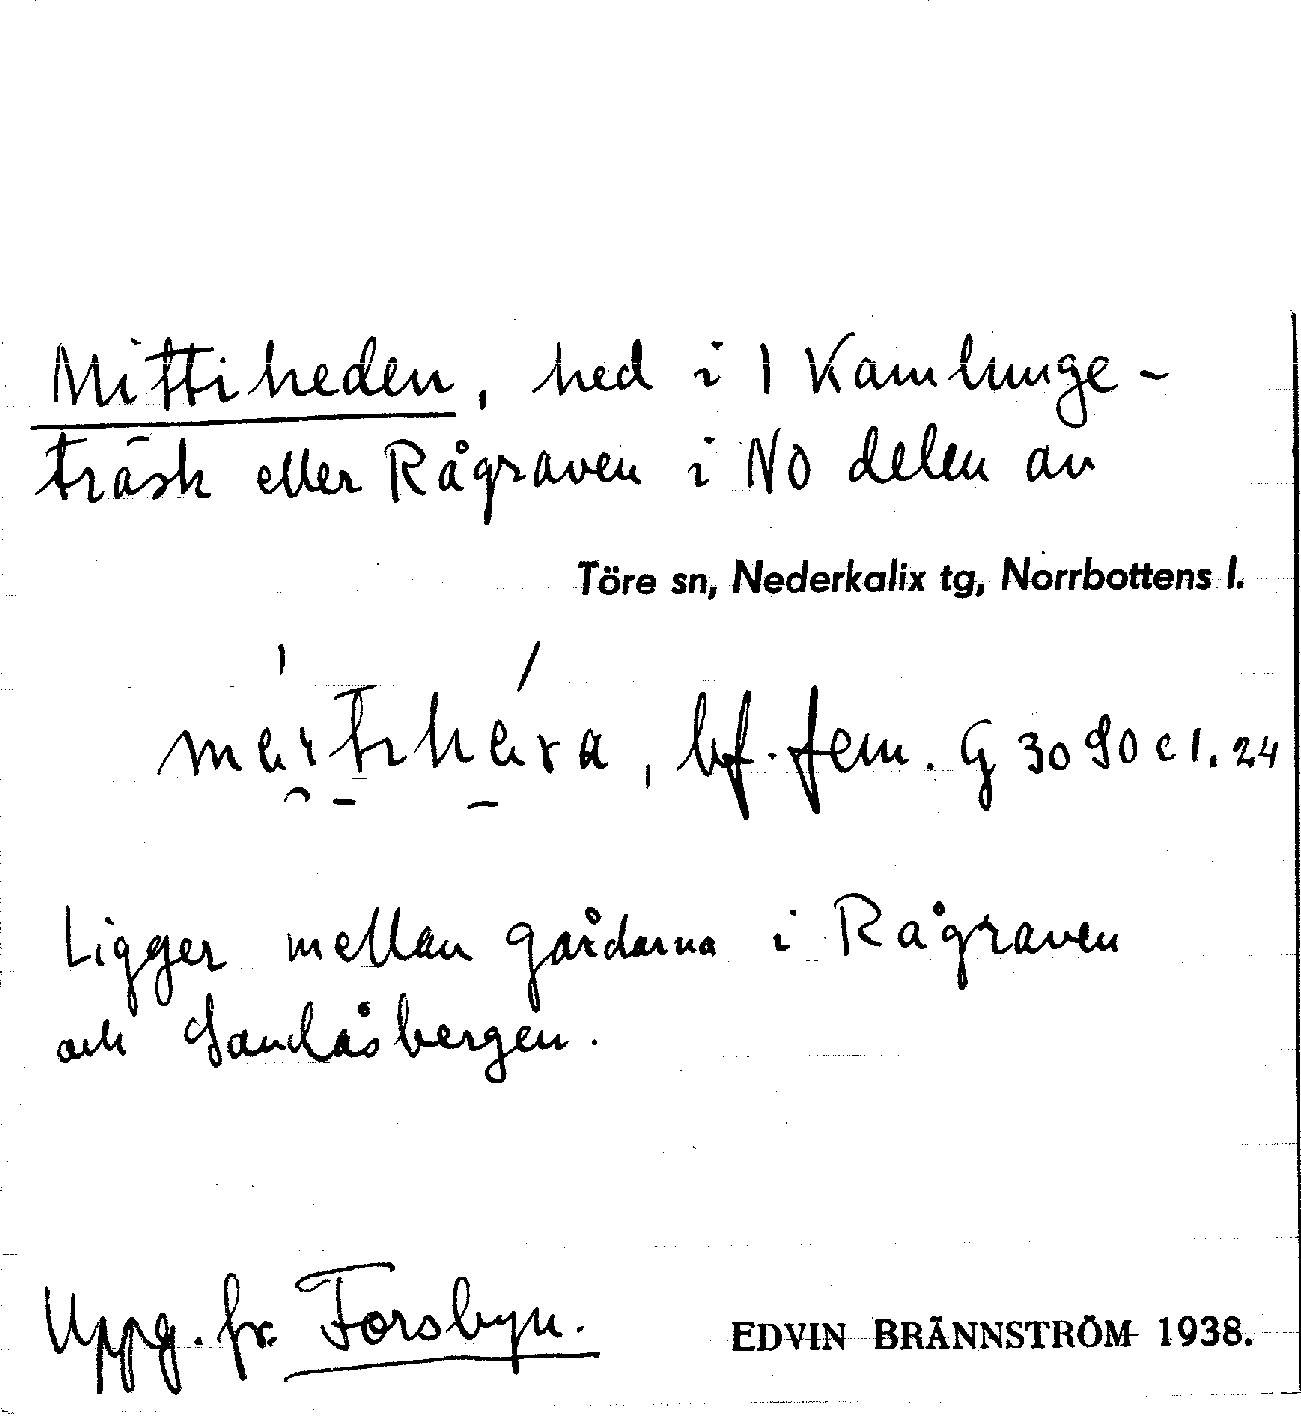 Mittiheden, hed i 1 Kamlunge-
träsk eller Rågraven i NO delen av
Töre sn, Nederkalix tg, Norrbottens l.
bf. fem. G 30 SO c 1. 24
Ligger mellan gårdarna i Rågraven
och Sandåsbergen.
Uppg. fr. Forsbyn.
EDVIN BRÄNNSTRÖM 1938.